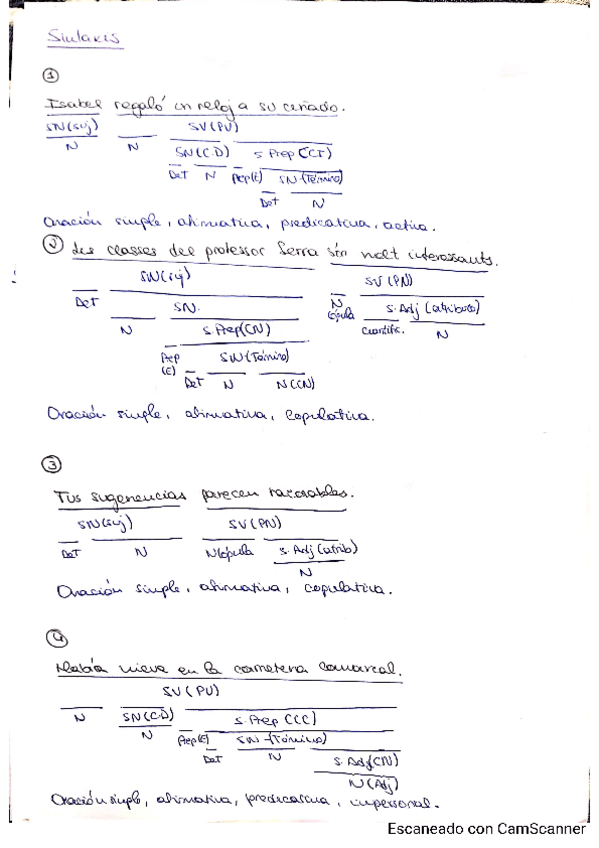 Sintaxis
①
Isabel regaló un reloj a su cuñado.
SN(suj) SV(PV)
N N SN(C.D) S.Prep(CCI)
Det N Prep(E) SN(Término)
Det N
Oración simple, afirmativa, predicativa, activa.
② Les classes del professor Serra són molt interessants.
SN(suj) SV(PN)
Det SN. N cópula S.Adj (atributo)
N S.Prep(CN) Cuantific. N
Prep (E) SN(Término)
Det N N(CN)
Oración simple, afirmativa, copulativa.
③
Tus sugerencias parecen razonables.
SN(suj) SV(PN)
Det N N(cópula S.Adj(atrib)
N
Oración simple, afirmativa, copulativa.
④
Había nieve en la carretera comarcal.
SV(PV)
N SN(C.D) S.Prep CCC)
N Prep(E) SN-(Término)
Det N S.Adj(CN)
N(Adj)
Oración simple, afirmativa, predicativa, impersonal.
Escaneado con CamScanner